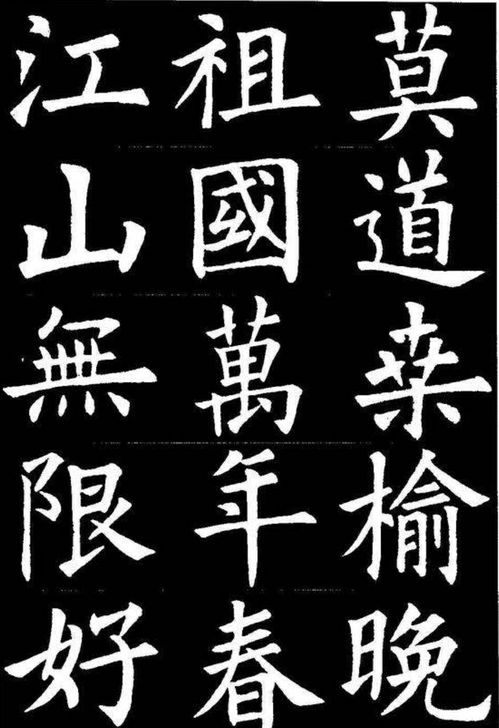 莫道桒榆晚
祖國萬年春
江山無限好